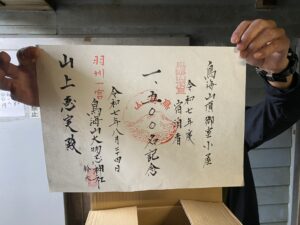 鳥海山頂御室小屋
令和七年度
宿泊者
一、五〇〇名記念
令和七年八月二四日
羽州一宮
鳥海山大物忌神社
山上
実殿